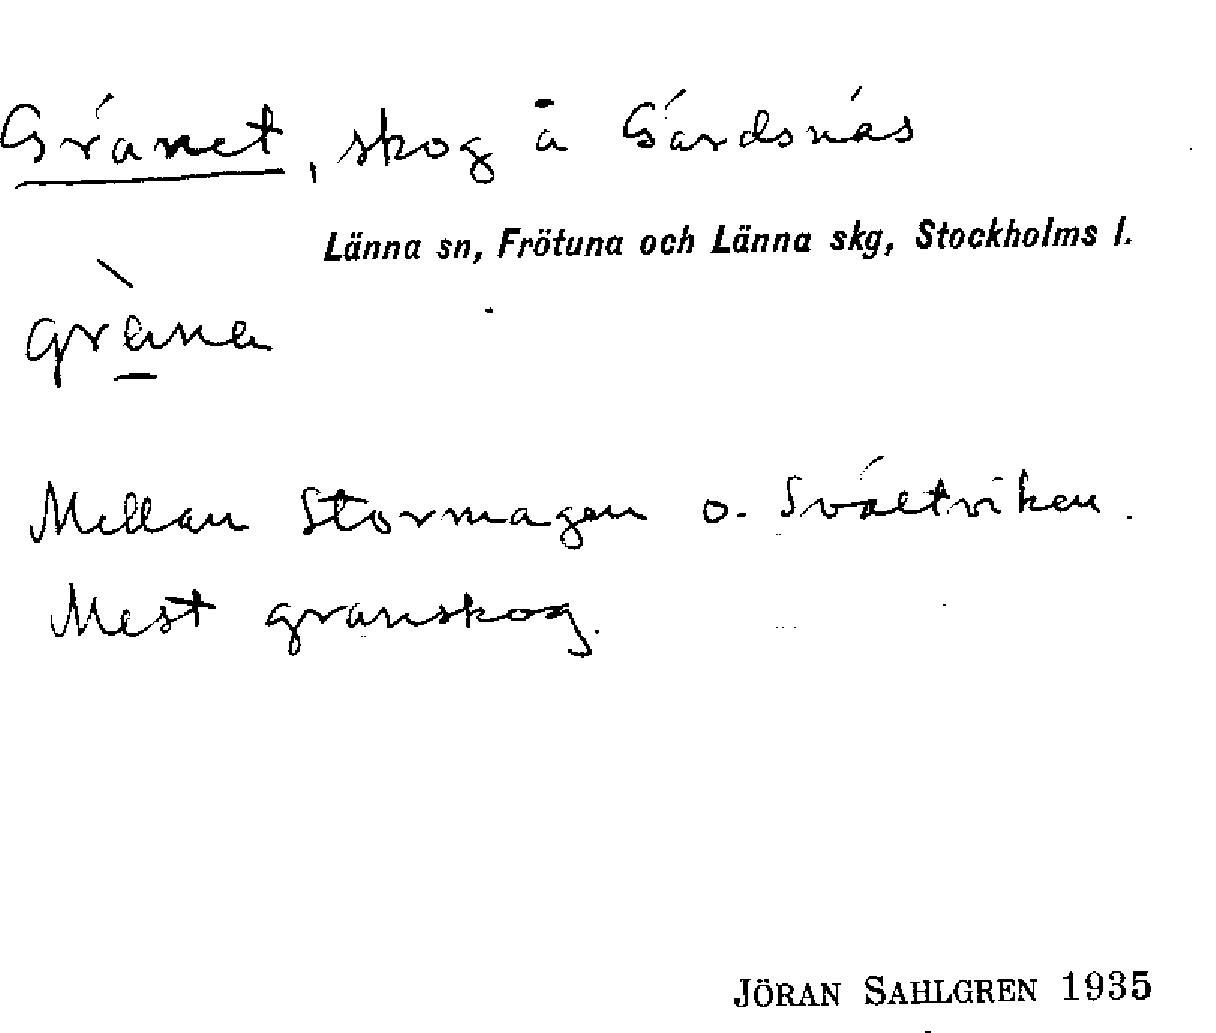 Gränet, skog å Gärdsnäs
Länna sn, Frötuna och Länna skg, Stockholms l.
gr̀äna
Mellan Stormagen o. Svältviken.
Mest granskog.
JÖRAN SAHLGREN 1935